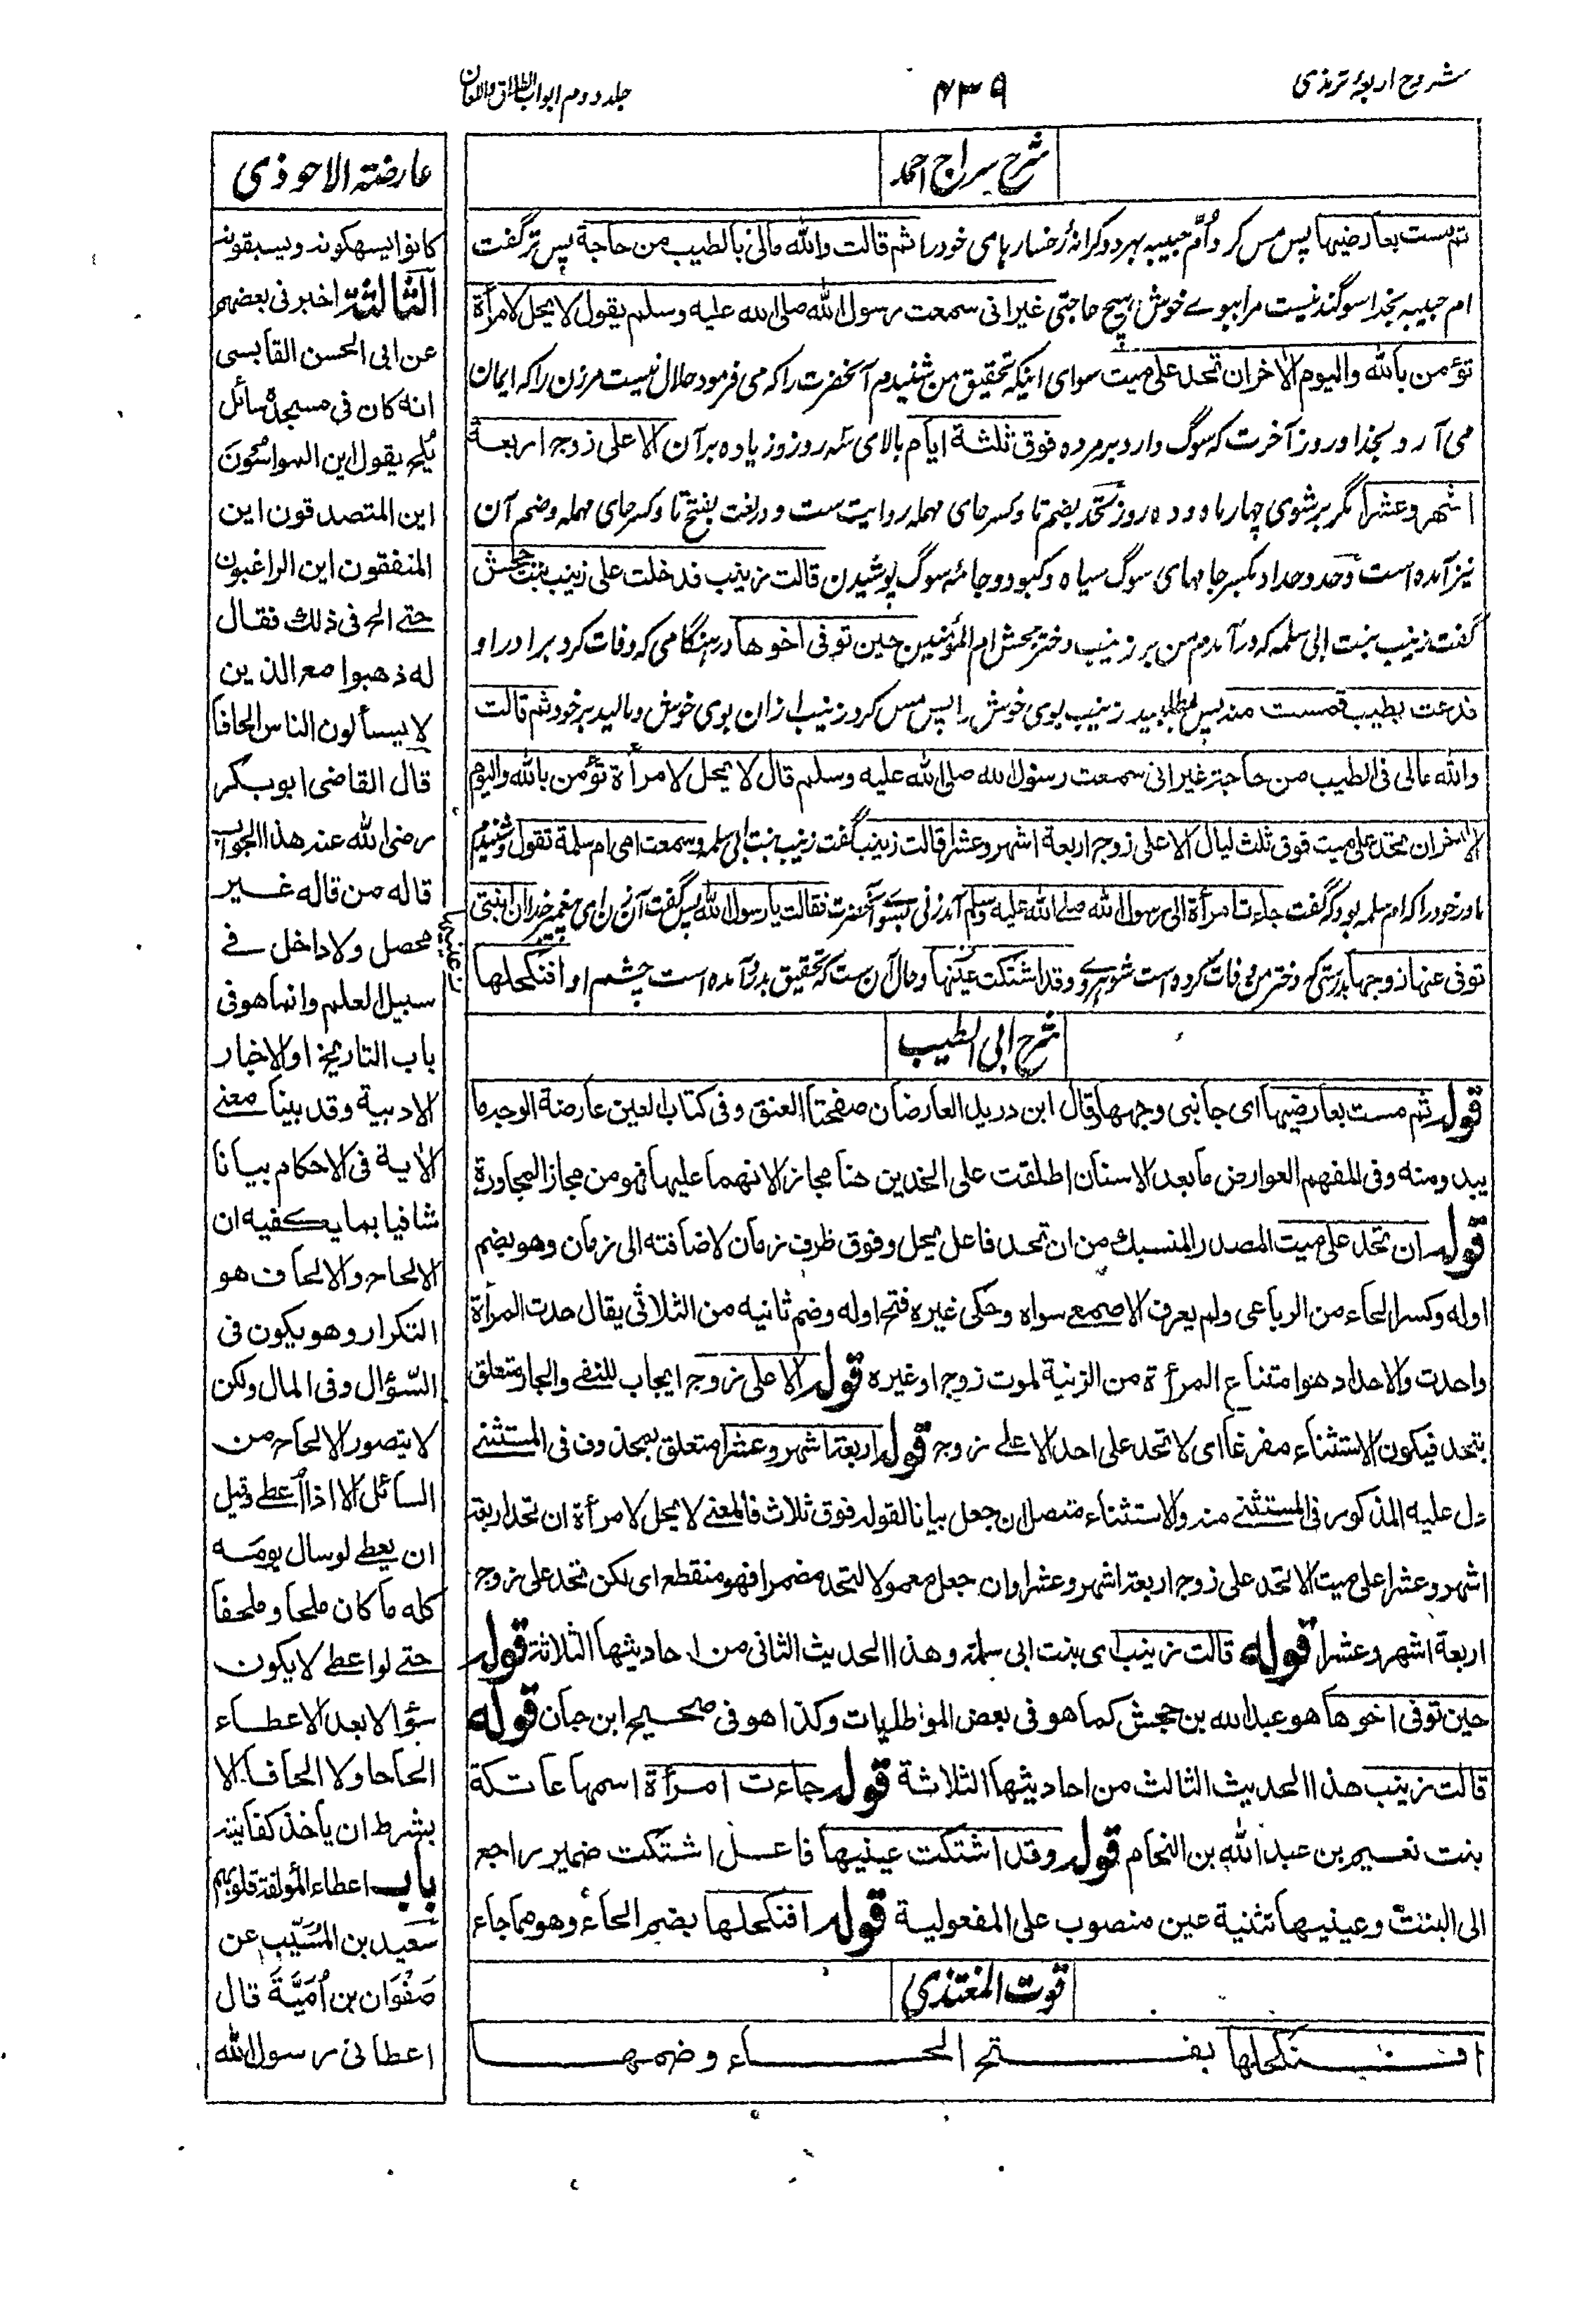 شروح اربعهٔ ترمذی
۴۳۹
جلد دوم ابواب الطلاق واللعان
شرح سراج احمد
ثم مست بعارضیها پس مس کرد اُم حبیبه بهر دو کرانهٔ رخسارهای خود را ثم قالت والله مالی بالطیب من حاجة پس تر گفت
ام حبیبه بخدا سوگند نیست مرا ببوے خوش هیچ حاجتی غیر انی سمعت رسول الله صلی الله علیه وسلم یقول لا یحل لامرأة
تؤمن بالله والیوم الاخر ان تحد علی میت سوای اینکه تحقیق من شنیدم آنحضرت را که می فرمود حلال نیست مر زن را که ایمان
می آرد بخدا و روز آخرت که سوگ دارد بر مرده فوق ثلثة ایام بالای سه روز و زیاده بر آن الا علی زوج اربعة
اشهر وعشرا مگر بر شوی چهار ماه و ده روز تحد بضم تا و کسر حای مهمله روایت ست و در لغت بفتح تا و کسر حای مهمله وضم آن
نیز آمده است وحد وحداد بکسر جامهای سوگ سیاه و کبود و جامهٔ سوگ پوشیدن قالت زینب فدخلت علی زینب بنت جحش
گفت زینب بنت ابی سلمه که در آمدم من بر زینب دختر جحش ام المؤمنین حین توفی اخوها در هنگامی که وفات کرد برادر او
فدعت بطیب فمست منه پس طلبید زینب بوی خوش را پس مس کرد زینب ازان بوی خوش و مالید بر خود ثم قالت
والله مالی فی الطیب من حاجة غیر انی سمعت رسول الله صلی الله علیه وسلم قال لا یحل لامرأة تؤمن بالله والیوم
الاخر ان تحد علی میت فوق ثلث لیال الا علی زوج اربعة اشهر وعشرا قالت زینب گفت زینب بنت ابی سلمه وسمعت امی ام سلمة تقول و شنیدم
مادر خود را که ام سلمه بود که گفت جاءت امرأة الی رسول الله صلی الله علیه وسلم آمد زنی بسوی آنحضرت فقالت یا رسول الله پس گفت آن زن ای پیغمبر خدا ان ابنتی
توفی عنها زوجها بدرستی که دختر من وفات کرده است شوهر وے وقد اشتکت عینیها و حال آن ست که تحقیق بدرد آمده است چشم او افنکحلها
شرح ابی الطیب
قوله ثم مست بعارضیها ای جانبی وجهها وقال ابن درید العارضان صفحتا العنق وفی کتاب العین عارضة الوجه ما
یبدو منه وفی المفهم العوارض ما بعد الاسنان اطلقت علی الخدین هنا مجازا لانهما علیها فهو من مجاز المجاورة
قوله ان تحد علی میت المصدر المنسبك من ان تحد فاعل یحل وفوق ظرف زمان لاضافته الی زمان وهو بضم
اوله وکسر الحاء من الرباعی ولم یعرف الاصمعی سواه وحکی غیره فتح اوله وضم ثانیه من الثلاثی یقال حدت المرأة
واحدت والاحداد هو امتناع المرأة من الزینة لموت زوج او غیره قوله الا علی زوج ایجاب للنفی والجار متعلق
بتحد فیکون الاستثناء مفرغا ای لا تحد علی احد الا علی زوج قوله اربعة اشهر وعشرا متعلق بمحذوف فی المستثنی
دل علیه المذکور فی المستثنی منه والاستثناء متصل ان جعل بیانا لقوله فوق ثلاث فالمعنی لا یحل لامرأة ان تحد اربعة
اشهر وعشرا علی میت الا تحد علی زوج اربعة اشهر وعشرا وان جعل معمولا لتحد مضمرا فهو منقطع ای لکن تحد علی زوج
اربعة اشهر وعشرا قوله قالت زینب ای بنت ابی سلمة وهذا الحدیث الثانی من احادیثها الثلاثة قوله
حین توفی اخوها هو عبد الله بن جحش کما هو فی بعض الموطئیات وکذا هو فی صحیح ابن حبان قوله
قالت زینب هذا الحدیث الثالث من احادیثها الثلاثة قوله جاءت امرأة اسمها عاتکة
بنت نعیم بن عبد الله بن النحام قوله وقد اشتکت عینیها فاعل اشتکت ضمیر راجع
الی البنت وعینیها تثنیة عین منصوب علی المفعولیة قوله افنکحلها بضم الحاء وهو مما جاء
قوت المغتذی
افنکحلها بفتح الحاء وضمها
عارضة الاحوذی
کانوا یسهکونه ویسبقونه
الثالثة اخبرنی بعضهم
عن ابی الحسن القابسی
انه کان فی مسجده سائل
یُلح یقول این المواسُونَ
این المتصدقون این
المنفقون این الراغبون
حتی الح فی ذلك فقال
له ذهبوا مع الذین
لا یسألون الناس الحافا
قال القاضی ابو بکر
رضی الله عنه هذا الجواب
قاله من قاله غیر
محصل ولا داخل فی
سبیل العلم وانما هو فی
باب التاریخ او الاخبار
الادبیة وقد بینا معنی
الآیة فی الاحکام بیانا
شافیا بما یکفیه ان
الالحاح والالحاف هو
التکرار وهو یکون فی
السؤال وفی المال ولکن
لا یتصور الالحاح من
السائل الا اذا اُعطی وقبل
ان یعطی لو سال یومه
کله ما کان ملحا وملحفا
حتی لو اعطی لا یکون
سؤالا بعد الاعطاء
الحاحا ولا الحافا الا
بشرط ان یأخذ کفایته
باب اعطاء المؤلفة قلوبهم
سَعید بن المُسَیّب عن
صَفْوَان بن اُمَیَّةَ قال
اعطانی رسول الله